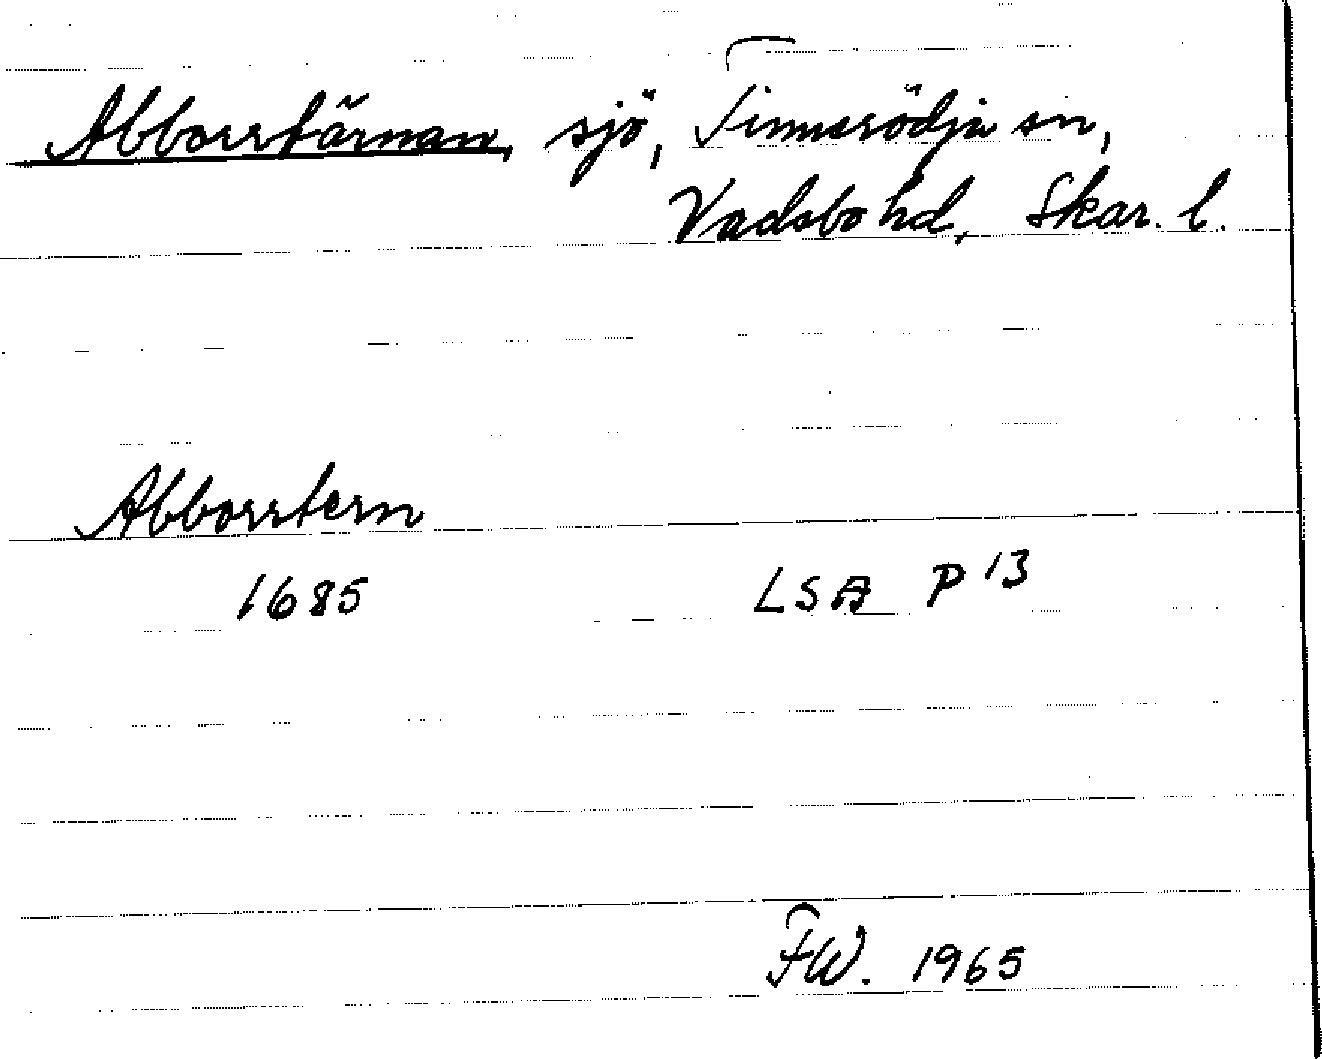 Abborrtärnan, sjö, Tinnerödja sn,
Vadsbo hd, Skar. l.
Abborrtern
1685 LSA P 13
FW. 1965